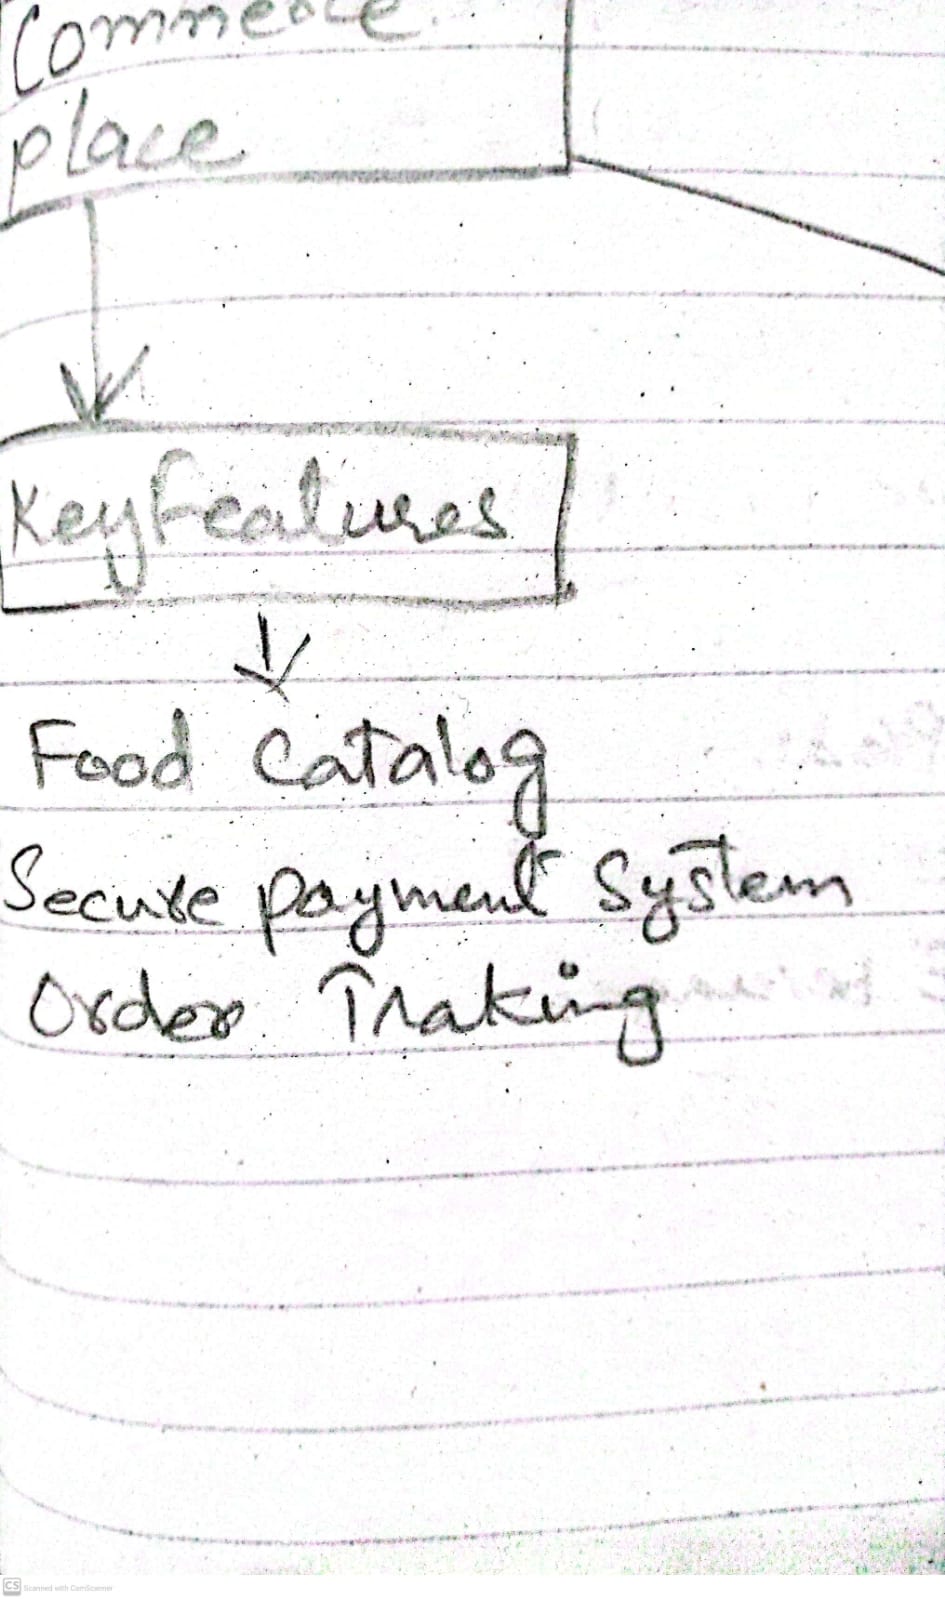 Commerce
place
Key Features
Food Catalog
Secure payment System
Order Traking
CS Scanned with CamScanner